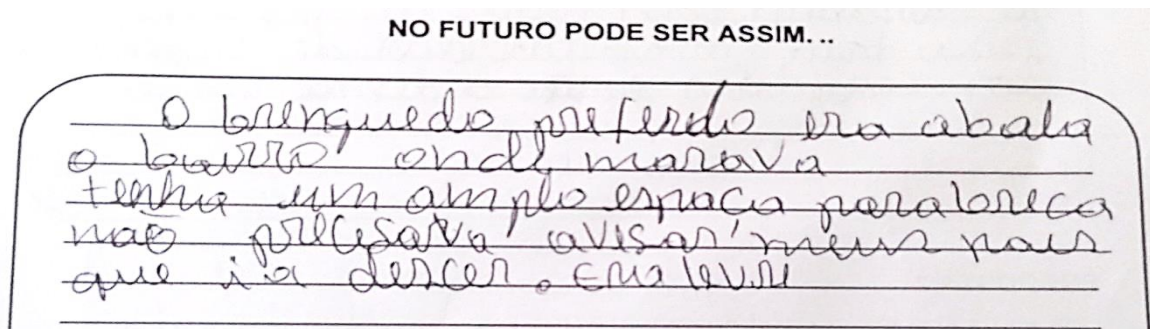 NO FUTURO PODE SER ASSIM...
O brenquedo preferdo era abala
o bairro onde marava
tenha um amplo espaça parabreca
não precesava avesar meus pais
que ia descer. Era levre